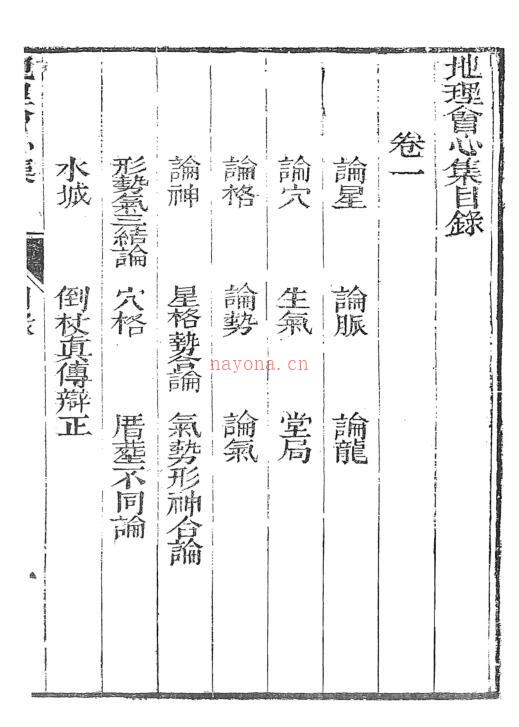 地理會心集目錄
卷一
論星 論脈 論龍
論穴 生氣 堂局
論格 論勢 論氣
論神 星格勢合論 氣勢形神合論
形勢氣三結論 穴格 厝塟不同論
水城 倒杖真傳辯正
地理會心集 目錄
nayona.cn